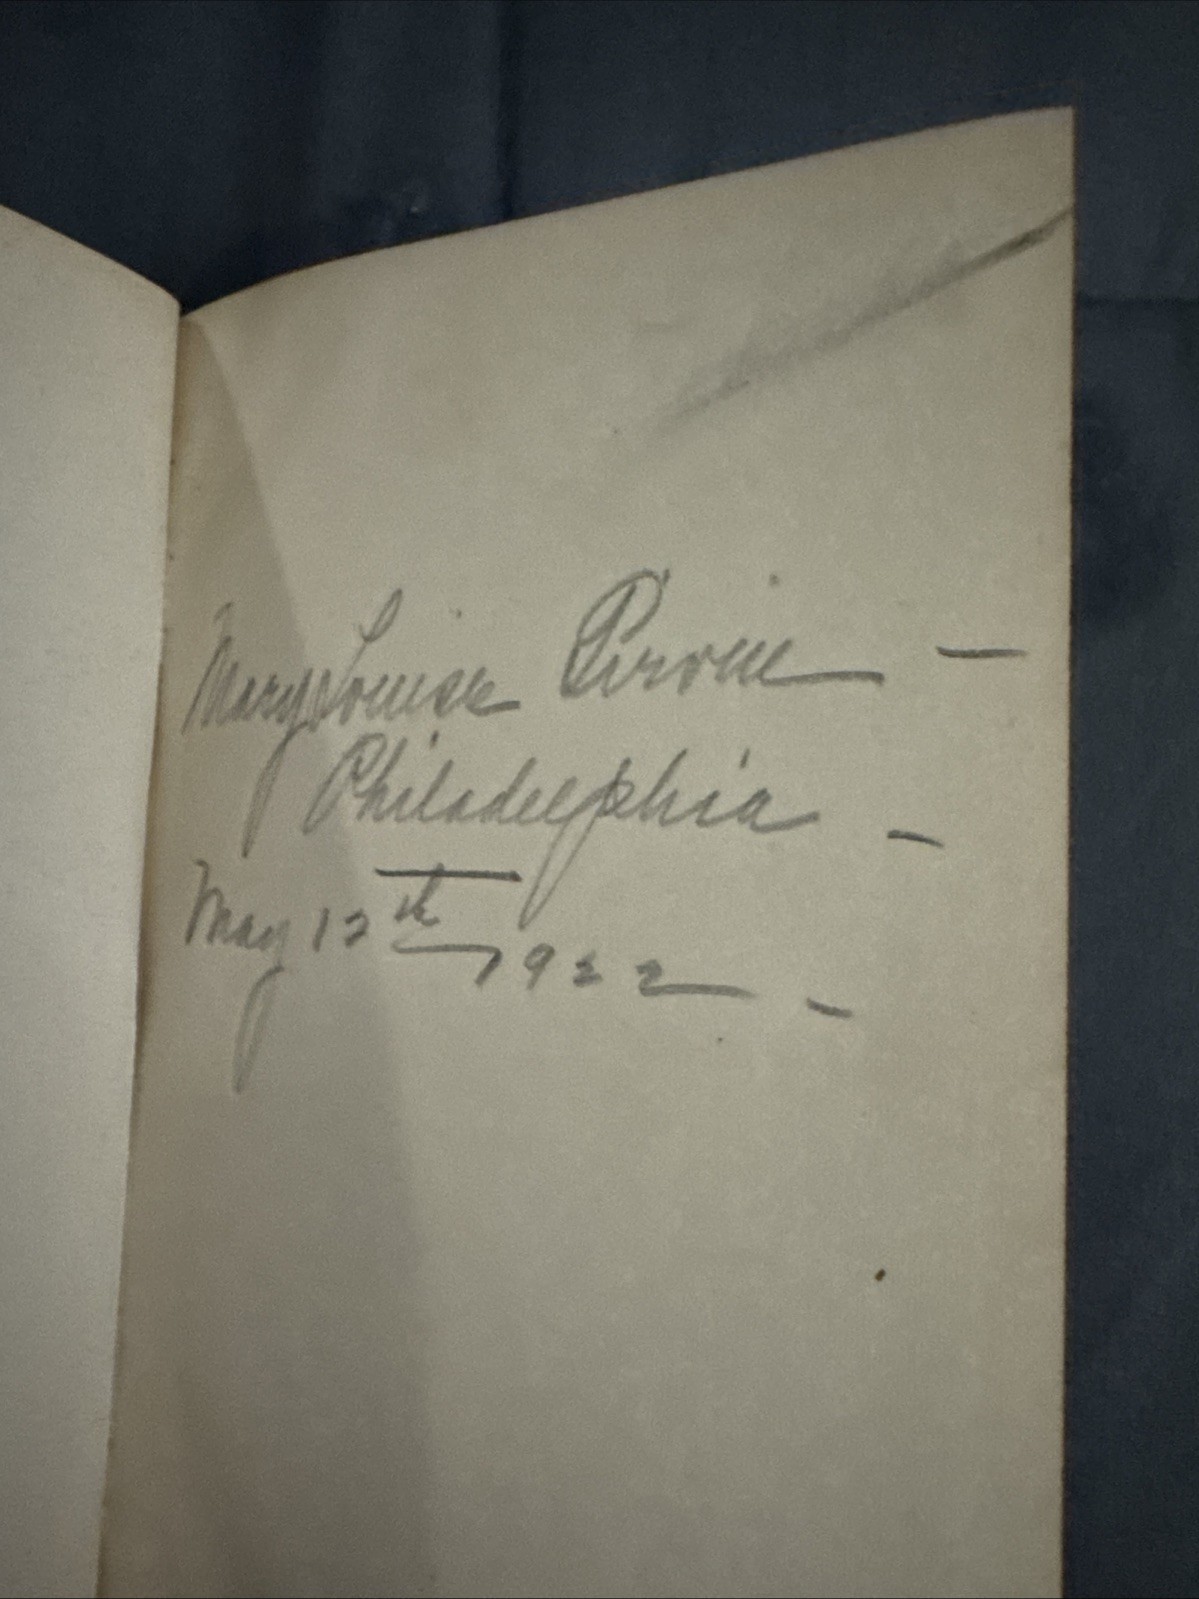 Mary Louise Pirovine —
Philadelphia —
May 12th 1922 —